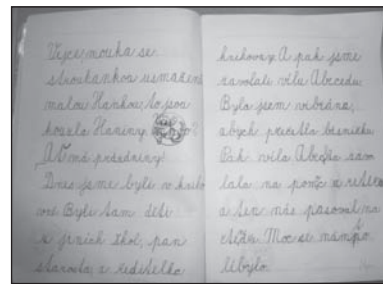 Vejce mouka se
strouhankou usmažená
malou Hankou, to jsou
kouzla Haniny
AŤ má prázdniny!
Dnes jsme byli v kniho
vně Byli tam děti
z jiných škol, pan
starosta, a ředitelka
knihovny. A pak jsme
zavolali vílu Abecedu.
Byla jsem vibrána,
abych přečetla básničku
Pak víla Abeceda zavo
lala na pomoc
a ten nás pasoval na
Moc se nám to
líbilo.